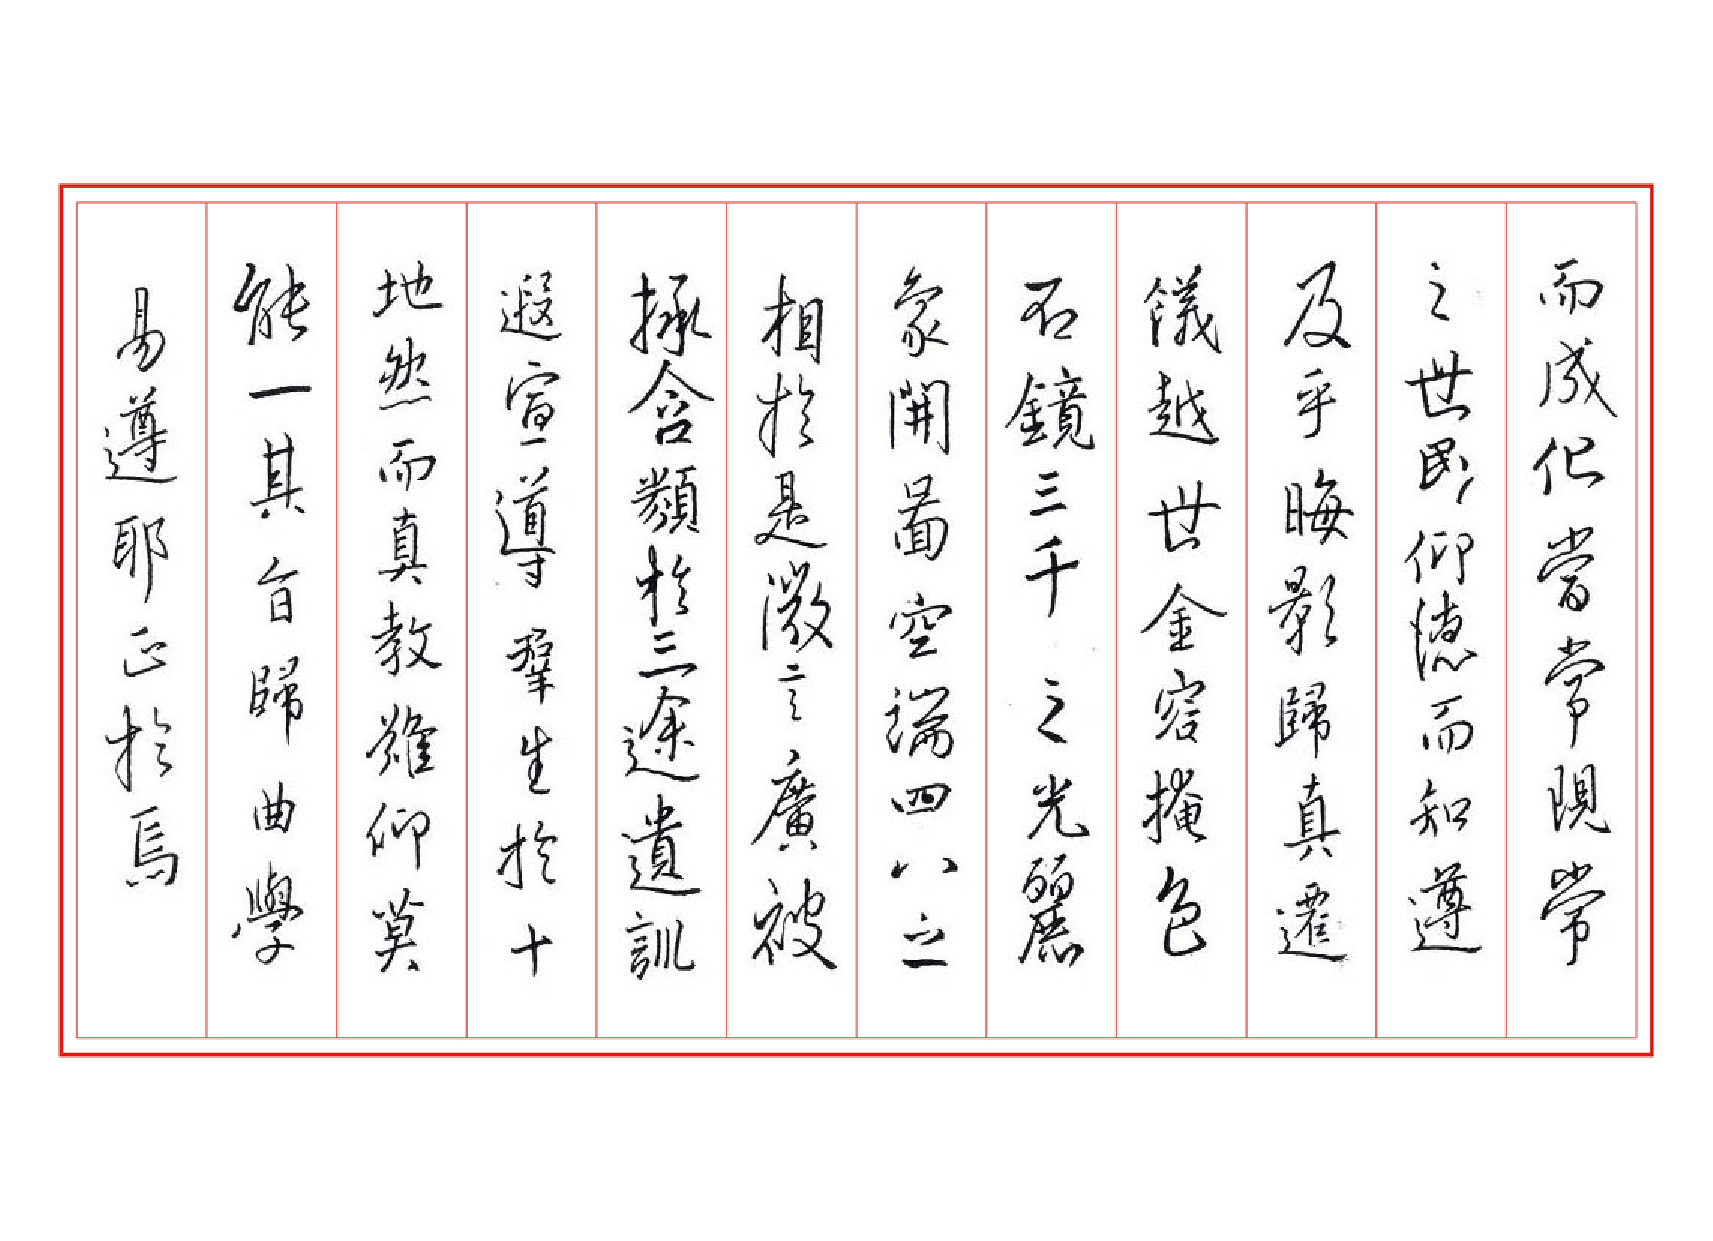 而成化當常現常
之世民仰德而知遵
及乎晦影歸真遷
儀越世金容掩色
不鏡三千之光麗
象開圖空端四八之
相於是微言廣被
拯含類於三途遺訓
遐宣導羣生於十
地然而真教難仰莫
能一其旨歸曲學
易遵耶正於焉